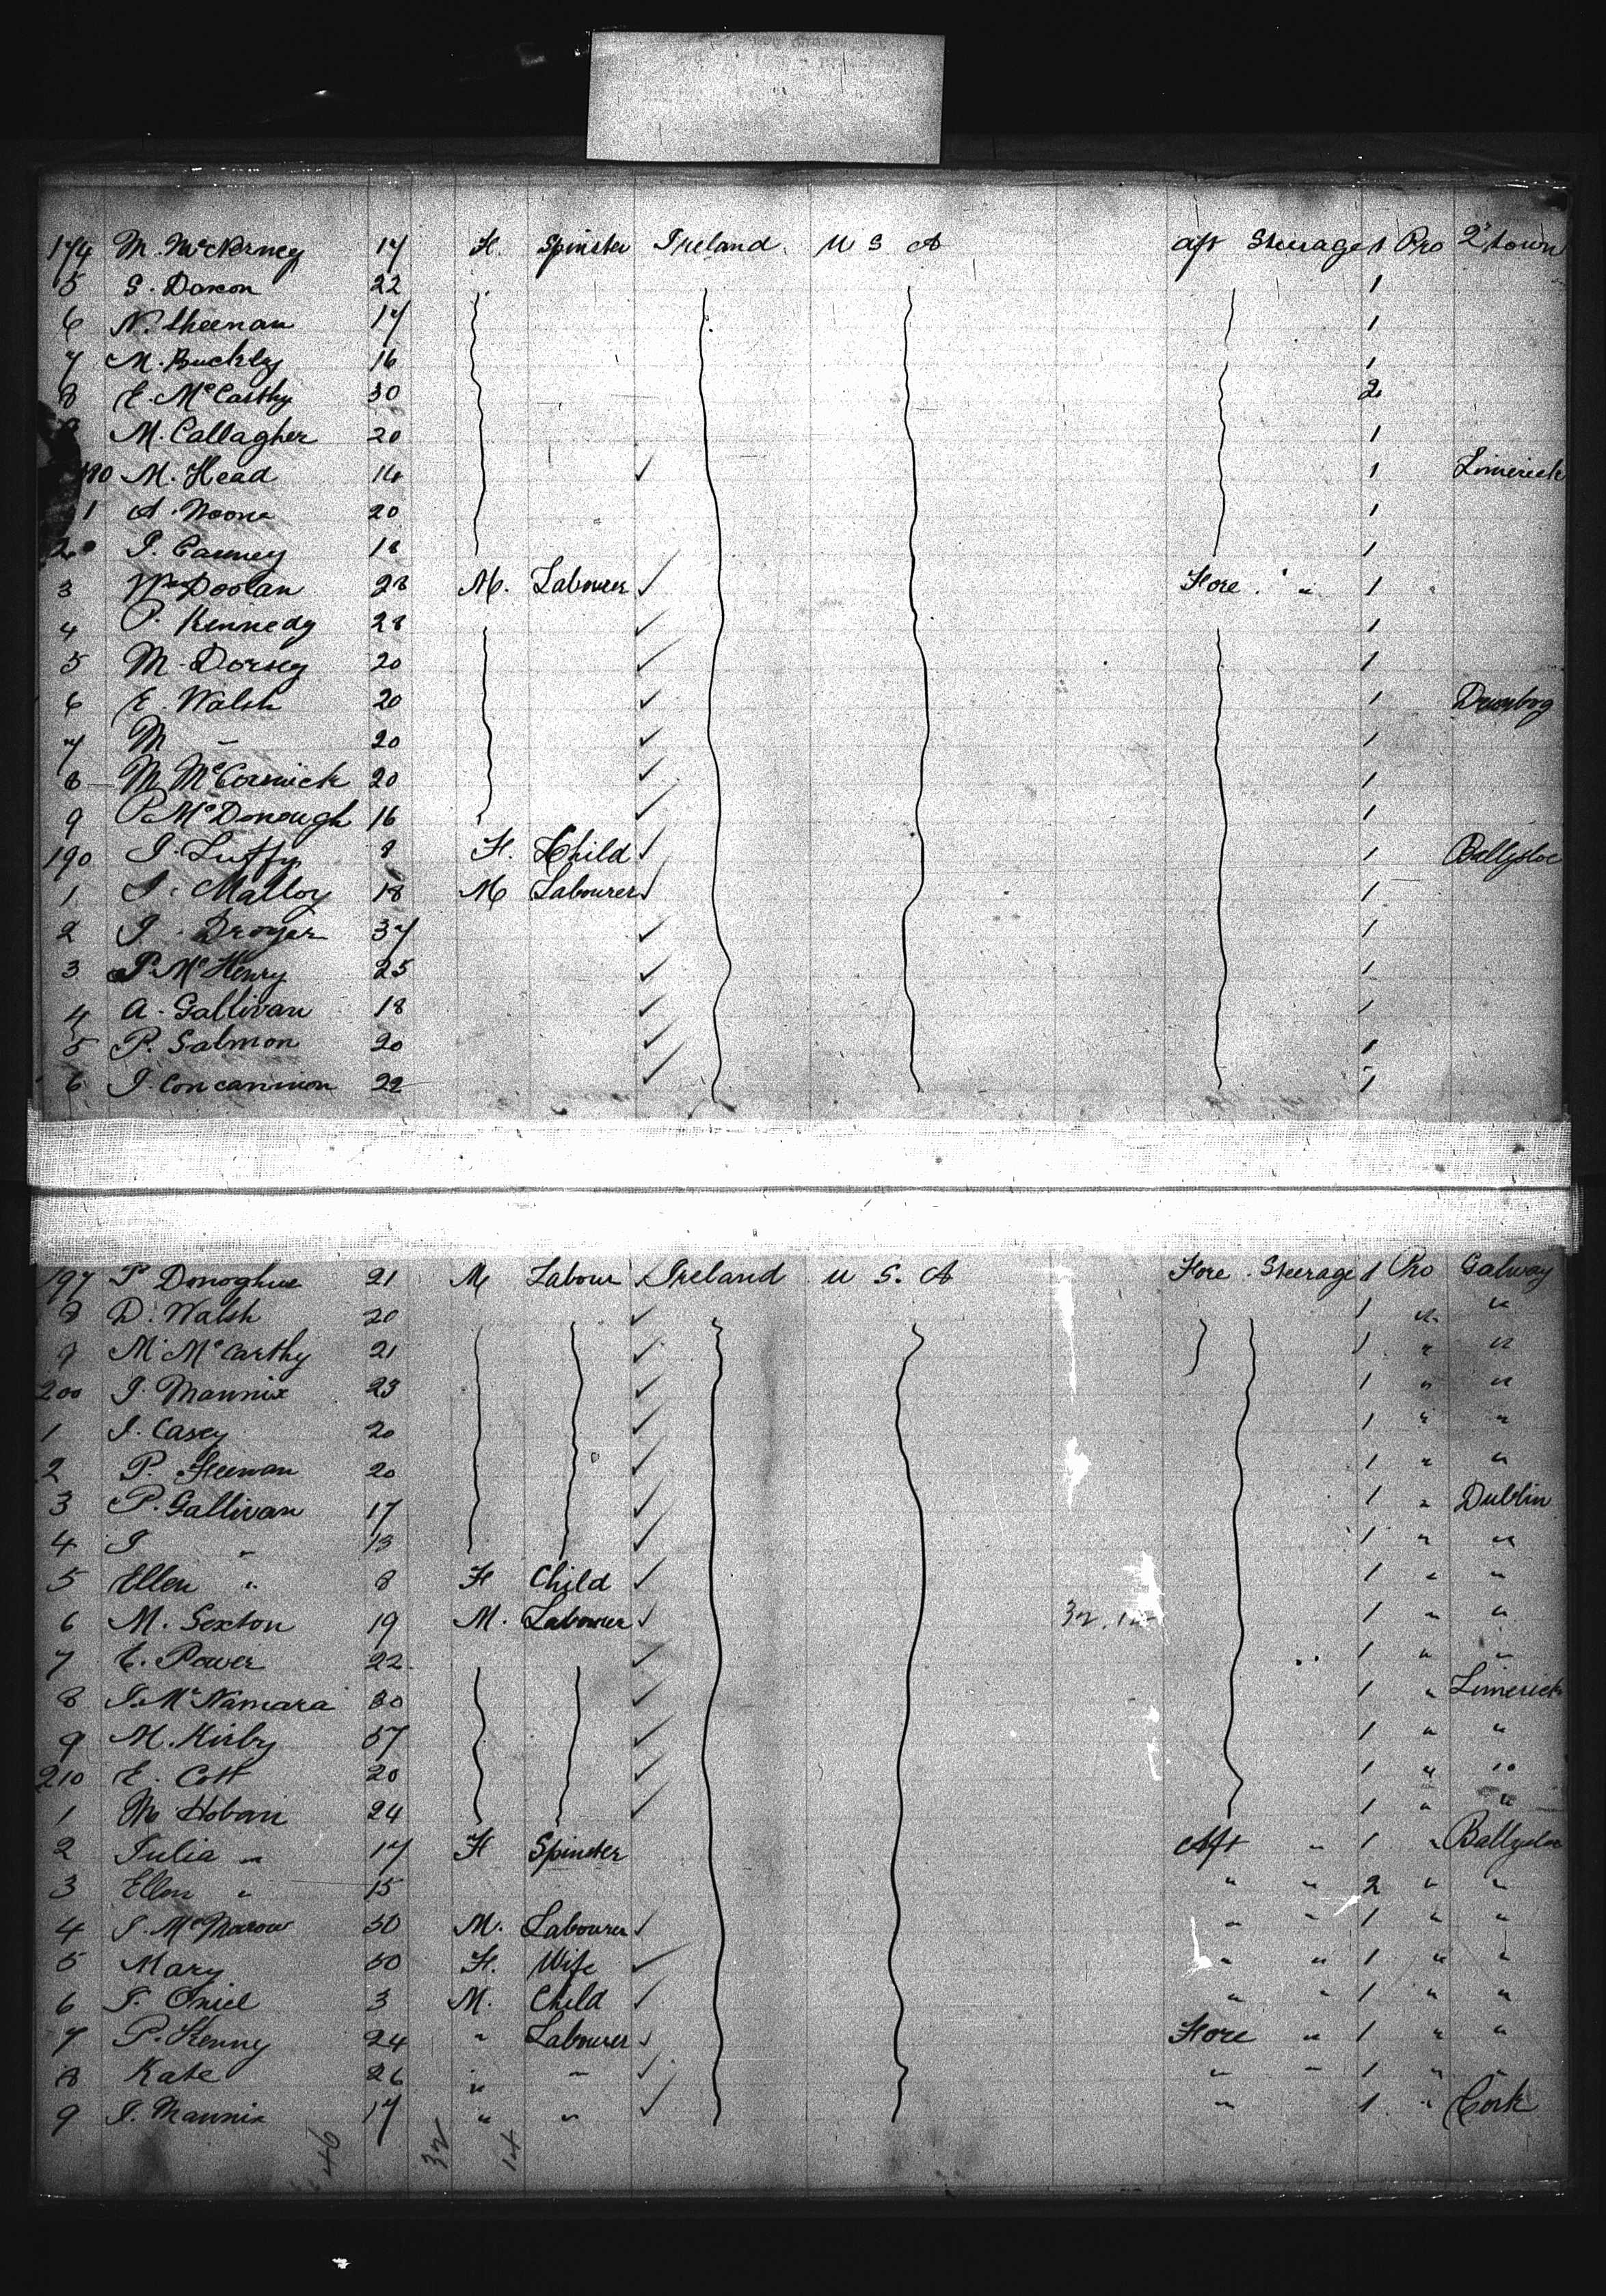 174 M. McNerney 17 F. Spinster Ireland U S A Aft Steerage 1 Pro Q'town
5 S. Daxon 22 1
6 N. Sheenan 17 1
7 M. Buckley 16 1
8 E. McCarthy 30 2
M. Callagher 20 1
180 M. Head 14 ✓ 1 Limerick
1 A. Noone 20 1
2 P. Canney 18 1
3 Wm Doolan 28 M. Labourer ✓ Fore " " 1 "
4 P. Kennedy 28 ✓ 1
5 M. Dorsey 20 ✓ 1
6 E. Walsh 20 ✓ 1
7 M " 20 ✓ 1
8 M McCormick 20 ✓ 1
9 P. McDonough 16 ✓ 1
190 J. Luffy 8 F. Child ✓ 1 Ballysloe
1 J. Malloy 18 M Labourer ✓ 1
2 J. Droyer 37 ✓ 1
3 P. McHenry 25 ✓ 1
4 A. Gallivan 18 ✓ 1
5 P. Salmon 20 ✓ 1
6 J. Concannon 22 ✓ 1
197 P Donoghue 21 M Labour ✓ Ireland U S. A Fore Steerage 1 Pro Galway
8 D. Walsh 20 ✓ 1 " "
9 M McCarthy 21 ✓ 1 " "
200 J. Mannix 23 ✓ 1 " "
1 J. Casey 20 ✓ 1 " "
2 P. Heenan 20 ✓ 1 " "
3 P. Gallivan 17 ✓ 1 " Dublin
4 J " 13 ✓ 1 " "
5 Ellen " 8 F Child ✓ 1 " "
6 M. Sexton 19 M. Labourer ✓ 1 " "
7 E. Power 22 ✓ 1 " "
8 J. McNamara 30 ✓ 1 " Limerick
9 M. Kirby 37 ✓ 1 " "
210 E. Cott 20 ✓ 1 " "
1 M Hoban 24 ✓ 1 " "
2 Julia " 17 F Spinster Aft " 1 " Ballysloe
3 Ellen " 15 " " 2 " "
4 J. McMorrow 50 M. Labourer ✓ " " 1 " "
5 Mary 50 F. Wife ✓ " " 1 " "
6 P. Oniel 3 M. Child ✓ " " 1 " "
7 P. Kenny 24 " Labourer ✓ Fore " 1 " "
8 Kate 26 " " ✓ " " 1 " "
9 J. Mannix 17 " " ✓ " 1 " Cork
46 32 14